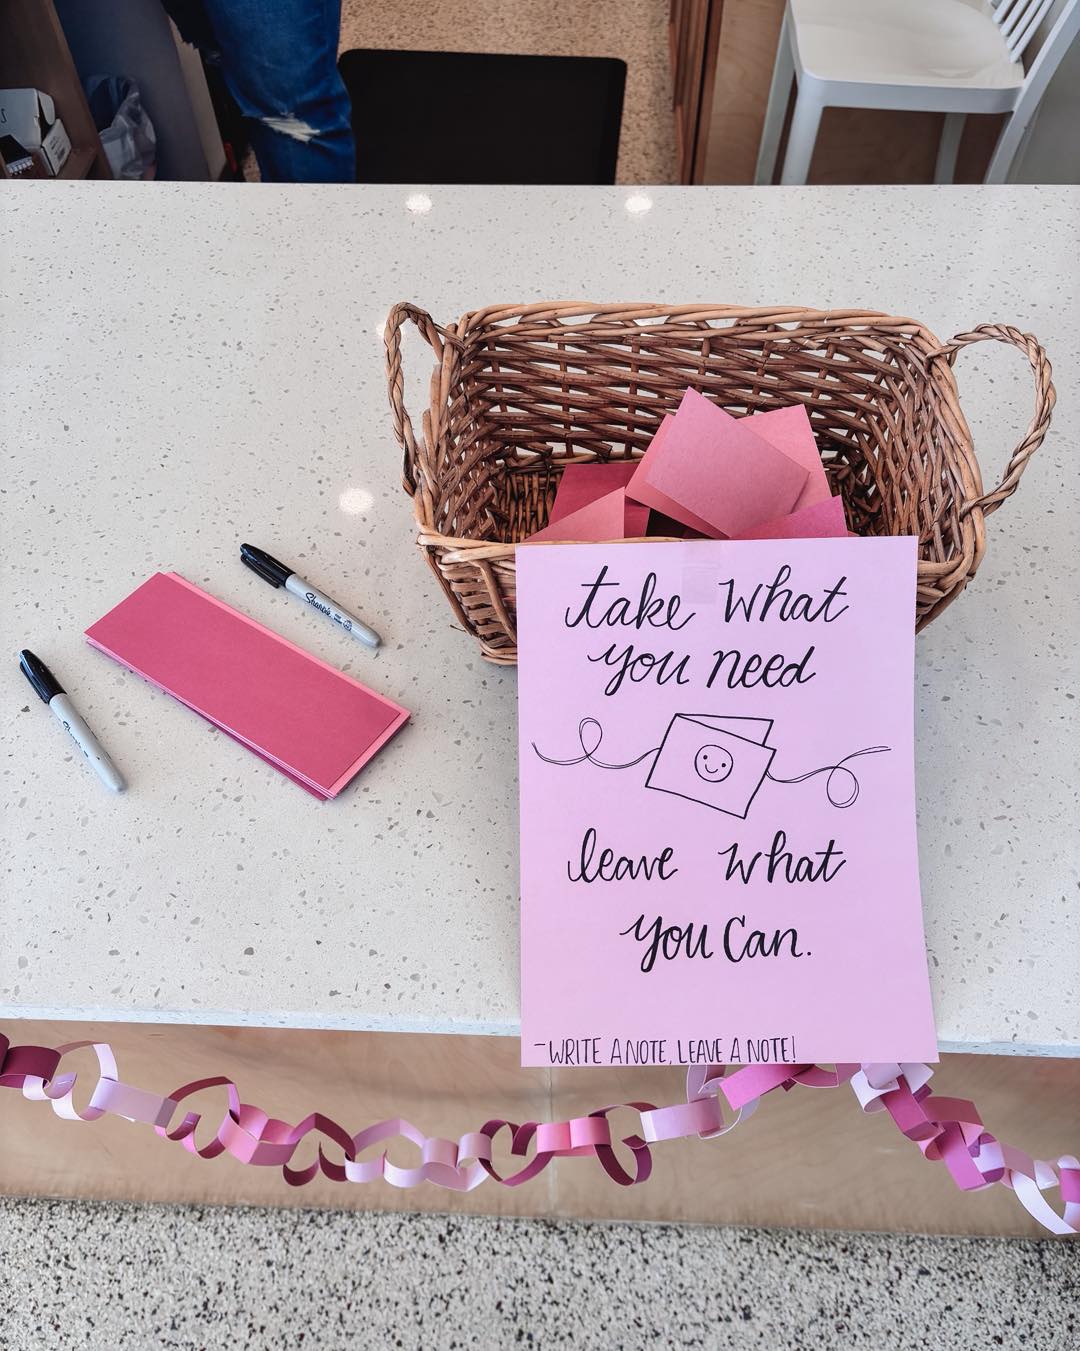 Sharpie
take what
you need
leave what
you can.
-WRITE A NOTE, LEAVE A NOTE!